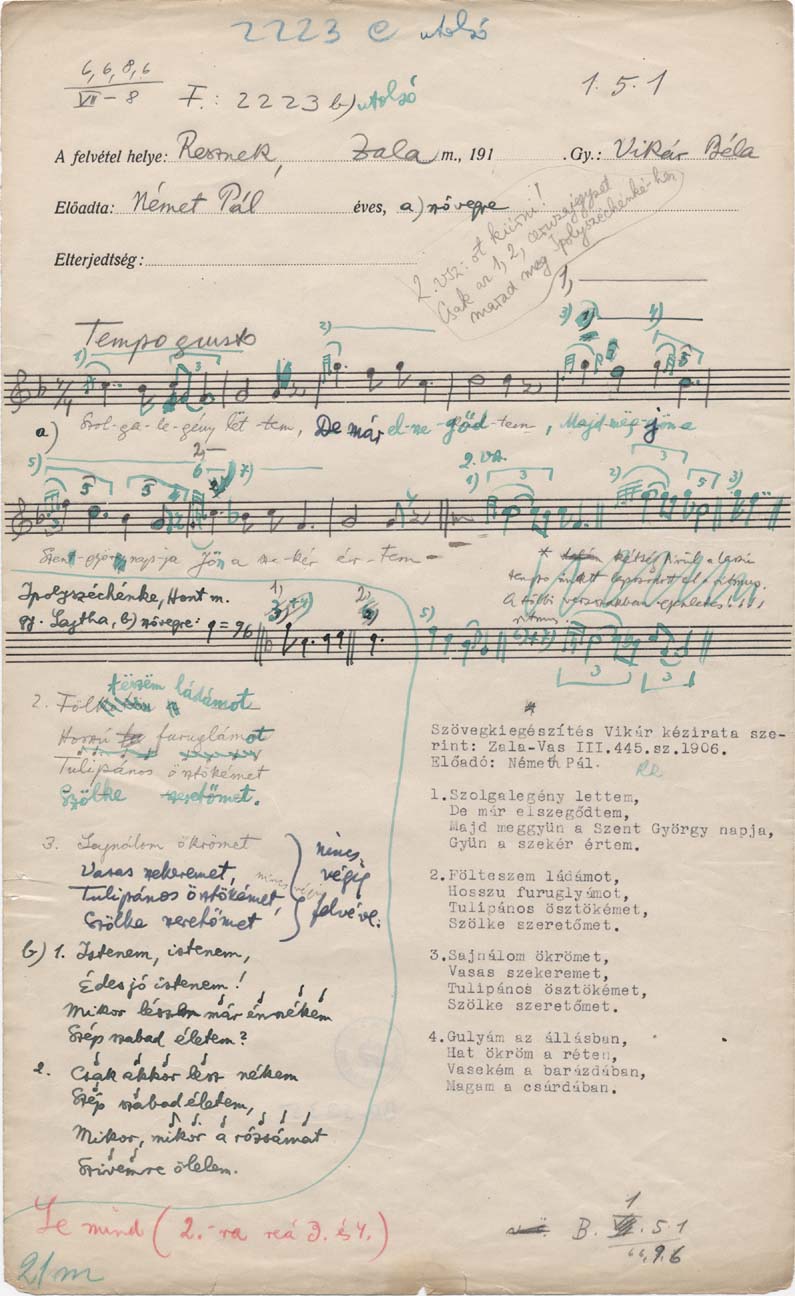 2223 C utolsó
6,6,8,6
VII-8 F.: 2223 b) utolsó
1. 5. 1
A felvétel helye: Resznek, Zala m., 191 . Gy.: Vikár Béla
Előadta: Német Pál éves, a) növegre
Elterjedtség:
2. vsz: ot kiírni!
Csak az 1, 2,
marad meg Ipolyszéchénké-hez
1,
Tempo giusto
1) 3 2) 3) 1) 4) 5
7/4
a) Szol-ga-le-gény let-tem, De már el-sze-gőd-tem, Majd-meg-jön a
5) 3 5 5 2, 6 7) 2. vsz. 1) 3 3 2) 5 3)
Szent-györgynapja Jön a sze-kér ér-tem
* kétség kívül a lassú
tempo miatt
A többi versszakban
ritmus.
Ipolyszéchénke, Hont m.
gy. Lajtha, b) növegre: = 96
1, 2, 5) 3 3
2. Föltëszëm ládámot
Hosszú furuglámot
Tulipános ösztökémet
Szőlke szeretőmet.
3. Sajnálom ökrömet
Vasas szekeremet,
Tulipános ösztökémet,
Szőlke szeretőmet
nincs
végig
felvéve.
b) 1. Istenem, istenem,
Édes jó istenem!
Mikor lészen már énnékem
Szép szabad életem?
2. Csak akkor lész nékem
Szép szabad életem,
Mikor, mikor a rózsámat
Szivemre ölelem.
*
Szövegkiegészítés Vikár kézirata sze-
rint: Zala-Vas III.445.sz.1906.
Előadó: Németh Pál.
1.Szolgalegény lettem,
De már elszegődtem,
Majd meggyün a Szent György napja,
Gyün a szekér értem.
2.Fölteszem ládámot,
Hosszu furuglyámot,
Tulipános ösztökémet,
Szölke szeretőmet.
3.Sajnálom ökrömet,
Vasas szekeremet,
Tulipános ösztökémet,
Szölke szeretőmet.
4.Gulyám az állásban,
Hat ökröm a réten,
Vasekém a barázdában,
Magam a csárdában.
Le mind (2.-ra reá 3. és 4.)
21 m
B. 1 . 5 . 1